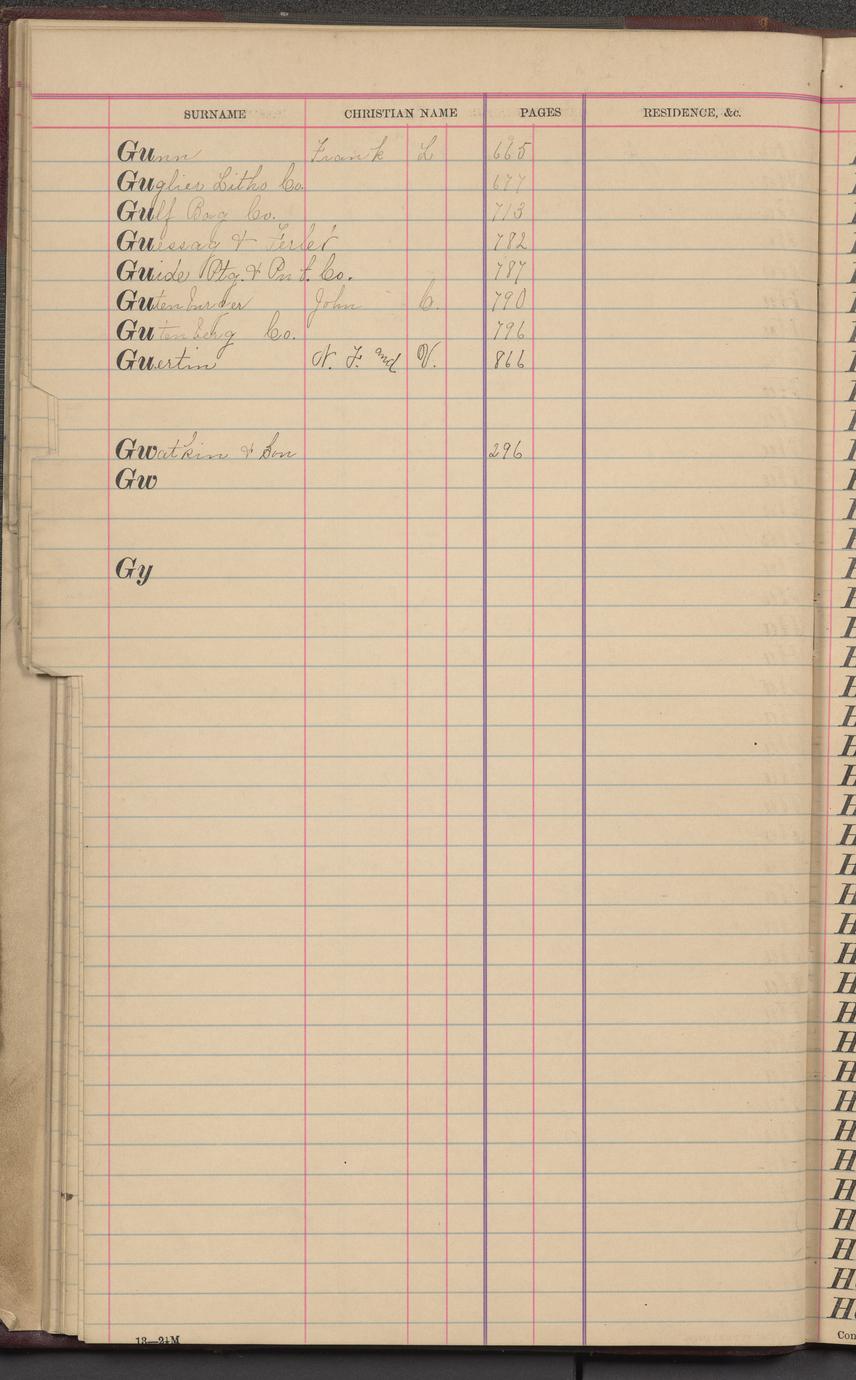 SURNAME CHRISTIAN NAME PAGES RESIDENCE, &c.
Gunn Frank L 665
Guglier Litho Co. 677
Gulf Bag Co. 713
Guessaz & Ferlet 782
Guide Ptg. & Pub. Co. 787
Gutenburger John C. 790
Gutenberg Co. 796
Guertin N. F. and V. 866
Gwatkin & Son 296
Gw
Gy
13—2½M